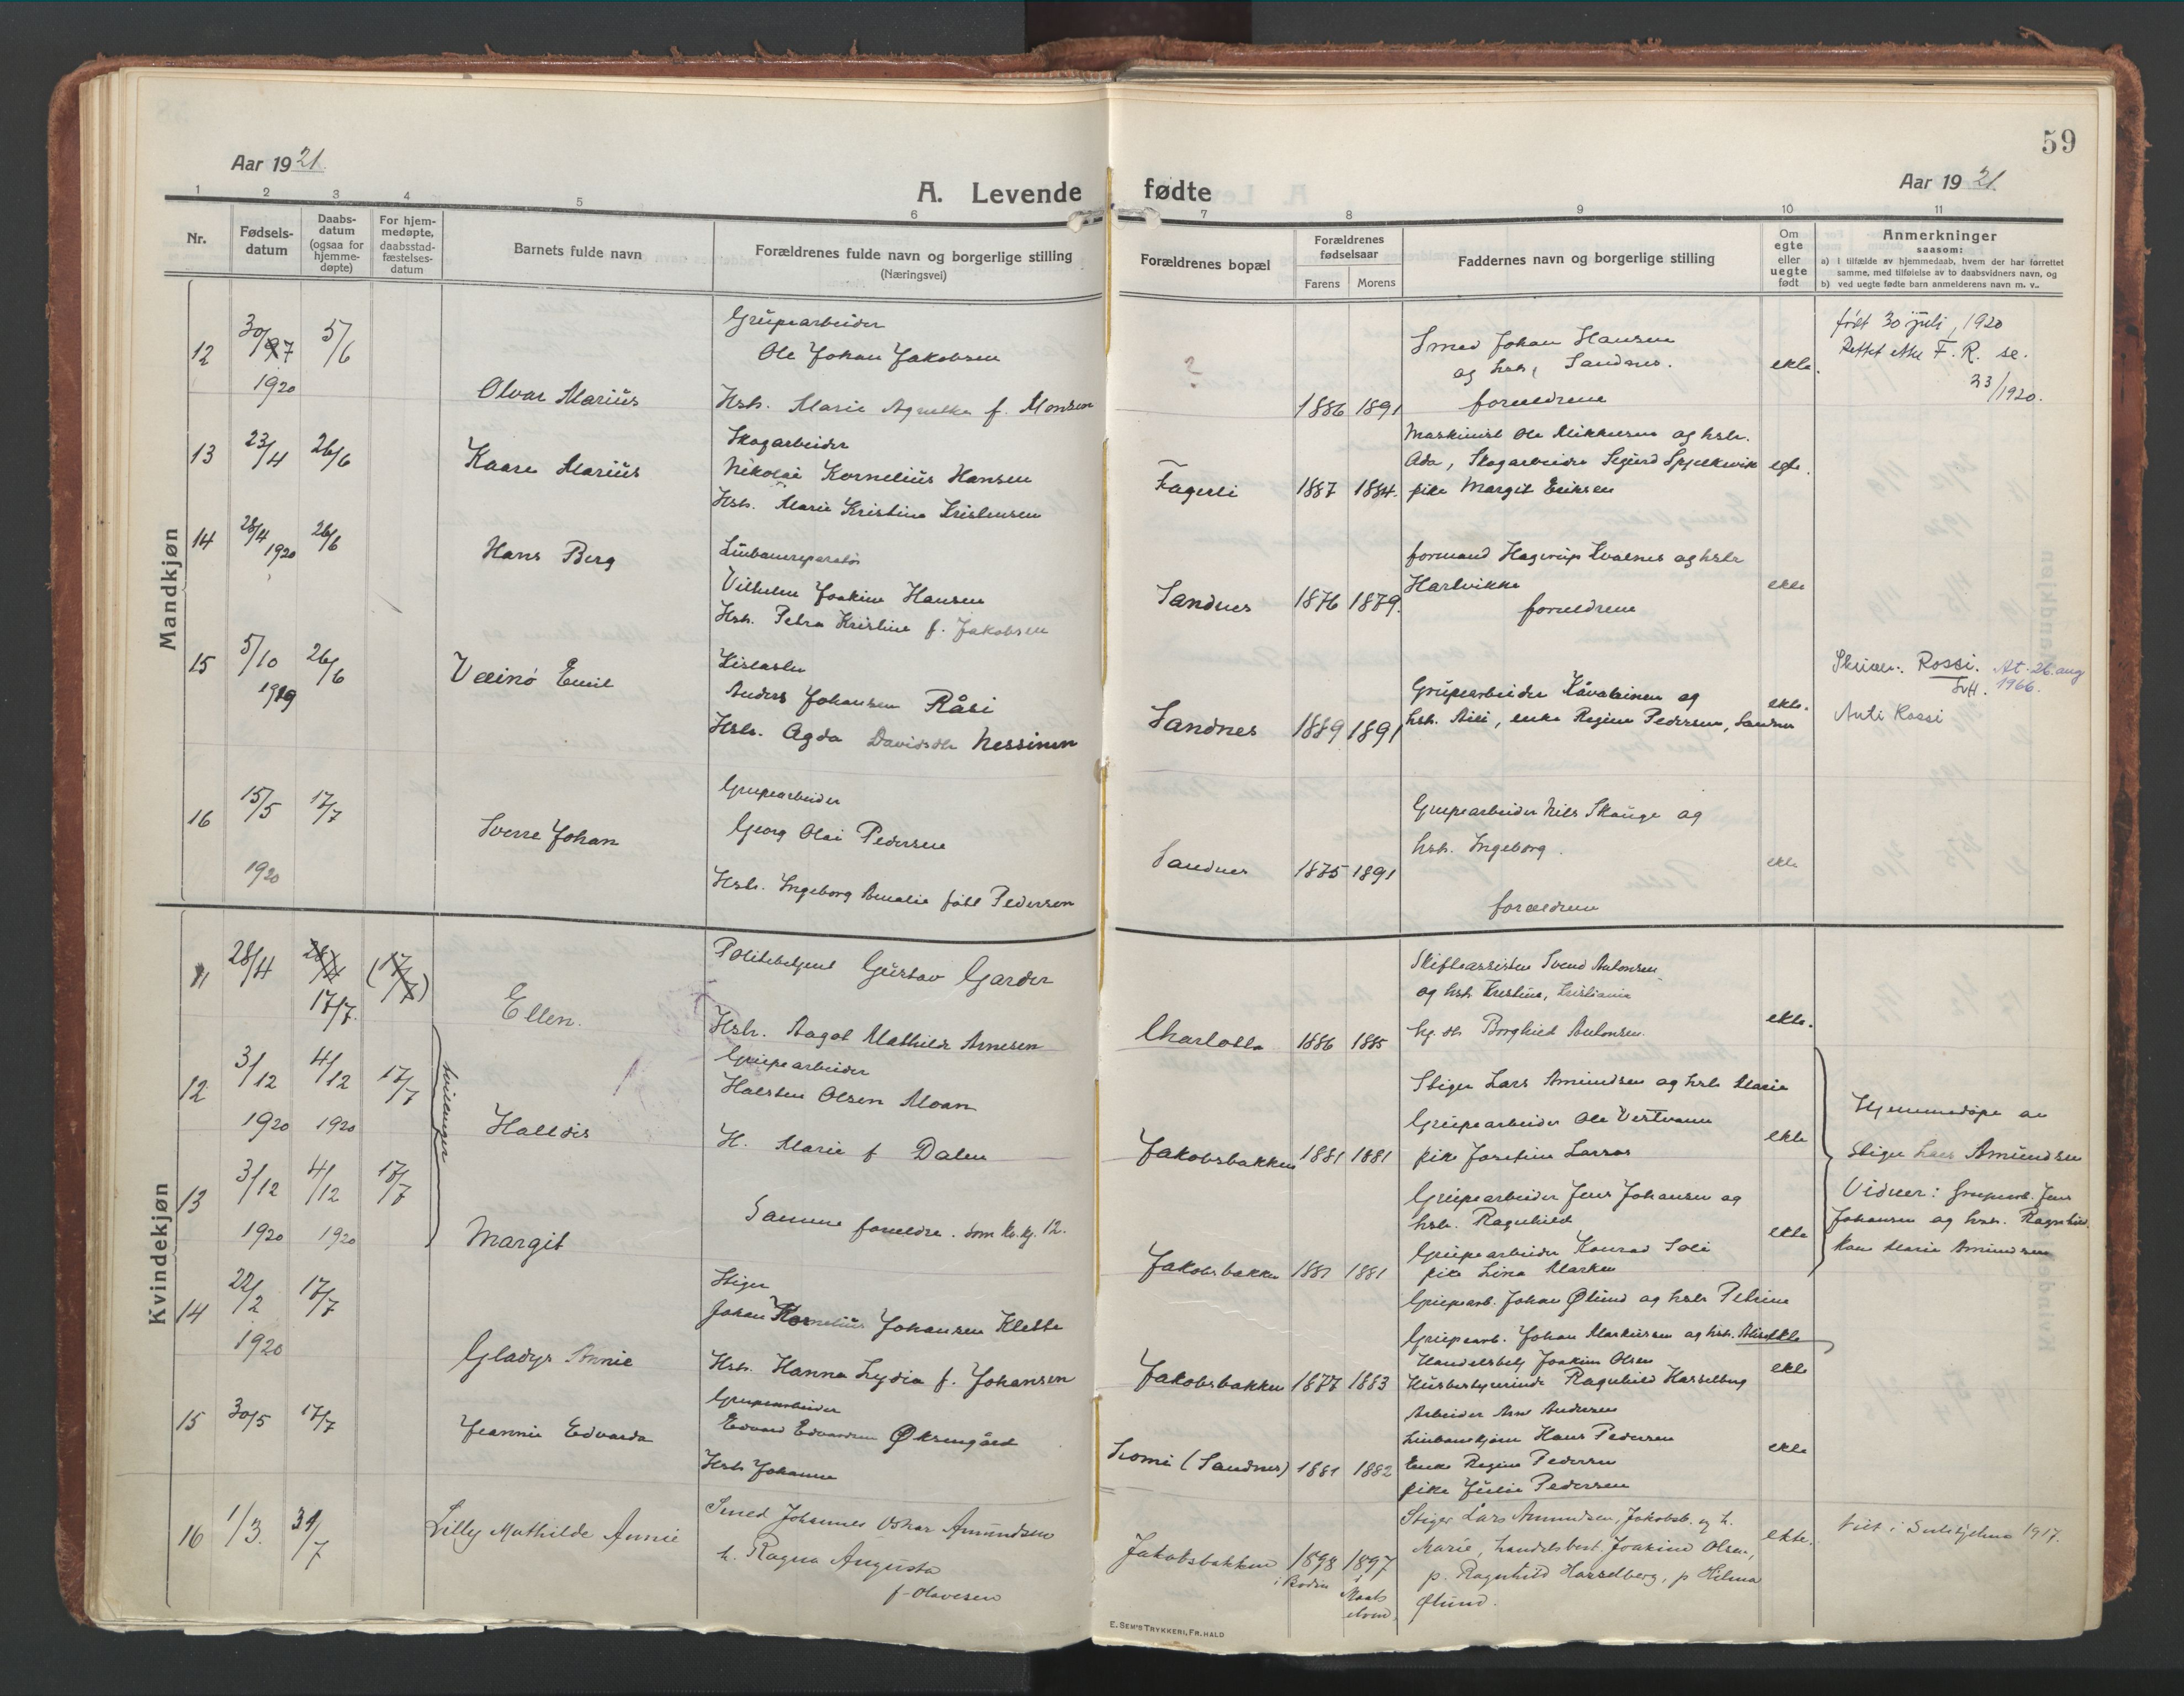 59
Aar 1921.
A. Levende fødte
Aar 1921.
1 2 3 4 5 6 7 8 9 10 11
Nr.
Fødsels-
datum
Daabs-
datum
(ogsaa for
hjemme-
døpte)
For hjem-
medøpte,
daabsstad-
fæstelses-
datum
Barnets fulde navn
Forældrenes fulde navn og borgerlige stilling
(Næringsvei)
Forældrenes bopæl
Forældrenes
fødselsaar
Farens Morens
Faddernes navn og borgerlige stilling
Om
egte
eller
uegte
født
Anmerkninger
saasom:
a) I tilfælde av hjemmedaab, hvem der har forrettet
samme, med tilføielse av to daabsvidners navn, og
b) ved uegte fødte barn anmelderens navn m. v..
Mandkjøn
12 30/7 1920 5/6
Olvar Marius
Grubearbeider
Ole Johan Jakobsen
Hstr. Marie Agnethe f. Monsen
?
1886 1891
Smed Johan Hansen
og hstr, Sandnes.
forældrene
ekte.
født 30 juli, 1920
Rettet etter F. R. se.
23/1920.
13 23/4 26/6
Kaare Marius
Skogarbeider
Nikolai Kornelius Hansen
Hstr. Marie Kristine Kristensen
Fagerli
1887 1884.
Maskinist Ole Mikkelsen og hstr.
Ada, Skogarbeider Sigurd Spjelkevik
pike Margit Eriksen
egte.
14 28/4 1920 26/6
Hans Berg
Linbanereparatør
Vilhelm Joakim Hansen
Hstr. Petra Kristine f. Jakobsen
Sandnes
1876 1879.
formand Hagerup Kvalnes og hstr
Hartvikke
forældrene
ekte
15 5/10 1919 26/6
Veeinö Emil
Anders Johansen Råsi
Hstr. Agda Davidsdtr Nessinen
Sandnes
1889 1891
Grubearbeider Kåvalainen og
hstr. Aili, enke Regine Pedersen, Sandnes
ekte.
Skriver: Rossi. At. 26. aug
1966.
Anti Rossi
16 15/5 1920 17/7
Sverre Johan
Grubearbeider
Georg Olai Pedersen
Hstr. Ingeborg Amalie født Pedersen
Sandnes
1875 1891
Grubearbeider Nils Skauge og
hstr. Ingeborg.
forældrene
ekte
Kvindekjøn
11 28/4 17/7. (17/7)
Ellen.
Politibetjent Gustav Garder
Hstr. Aagot Mathilde Arnesen
Charlotta
1886 1885
Skifteassistent Svend Antonsen
og hstr Kristine, Kristiania
Borghild Antonsen.
ekte.
tvillinger
12 3/12 1920 4/12 1920 17/7
Halldis
Grubearbeider
Halsten Olsen Moan
H. Marie f Dalen
Jakobsbakken
1881 1881
Stiger Lars Amundsen og hstr Marie
Grubearbeider Ole Vestvann
pike Josefine Larsos
ekte
Hjemmedøpt av
Stiger Lars Amundsen
Vidner: Grubearb. Jens
Johansen og hstr. Ragnhild
kone Marie Amundsen
13 3/12 1920 4/12 1920 17/7
Margit
Samme foreldre. som kv. kj. 12.
Jakobsbakken
1881 1881
Grubearbeider Jens Johansen og
hstr. Ragnhild
Grubearbeider Konrad Soli
pike Lina Marken
ekte
14 22/2 1920 17/7
Gladys Annie
Stiger
Johan Kornelius Johansen Klette
Hstr. Hanna Lydia f. Johansen
Jakobsbakken
1877 1883
Grubearb. Johan Ølund og hstr Petrine
Grubearb. Johan Markussen og hstr.
Handelsbetj Joakim Olsen
Husbestyrerinde Ragnhild Hasselberg
ekte
15 30/5 17/7
Jeannie Edvarda
Grubearbeider
Edvard Edvardsen Øksengård
Hstr Johanne
Lomi (Sandnes)
1881 1882
Arbeider Arne Andersen
Linbanekjører Hans Pedersen
Enke Regine Pedersen
pike Julie Pedersen
ekte
16 1/3. 31/7
Lilly Mathilde Annie
Smed Johannes Oskar Amundsen
h. Ragna Augusta
f. Olavesen
Jakobsbakken
1898 i Bodin
1897 i Maalselven.
Stiger Lars Amundsen, Jakobsb. og h.
Marie, handelsbest. Joakim Olsen,
p. Ragnhild Hasselberg, p Hilma
Ølund.
ekte.
Viet i Sulitjelma 1917.
E. SEM'S TRYKKERI, FR.HALD